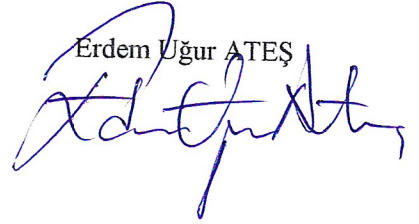 Erdem Uğur ATEŞ